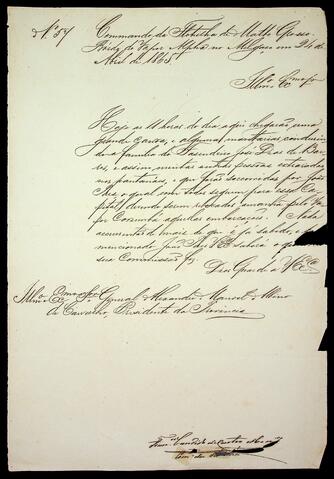 Nº 57
Commando da Flotilha de Matto Grosso
Bordo do Vapor Alpha no Melgaço em 24 de
Abril de 1865.
Illmo Exmo Snr
Hoje as 11 horas do dia aqui chegarão uma
grande canoa, e algumas montarias conduzin
do a familia do Fasendeiro José Dias de Bar
ros, e assim mais outras pessoas extraviadas
nos pantanaes, e que forão soccorridas por João
o qual com todos seguem para essa Ca
pital, devendo ser rebocadas amanhã pelo Va
por Corumbá aquellas embarcaçoes. Nada
accrescentarei mais do que é já sabido, e do
mencionado João V Exª saberá o que
sua Commissão fez.
Deos Guarde a V Exª
Illmo Exmo Snr General Alexandre Manoel Albino
de Carvalho, Presidente da Provincia
Candido de Castro